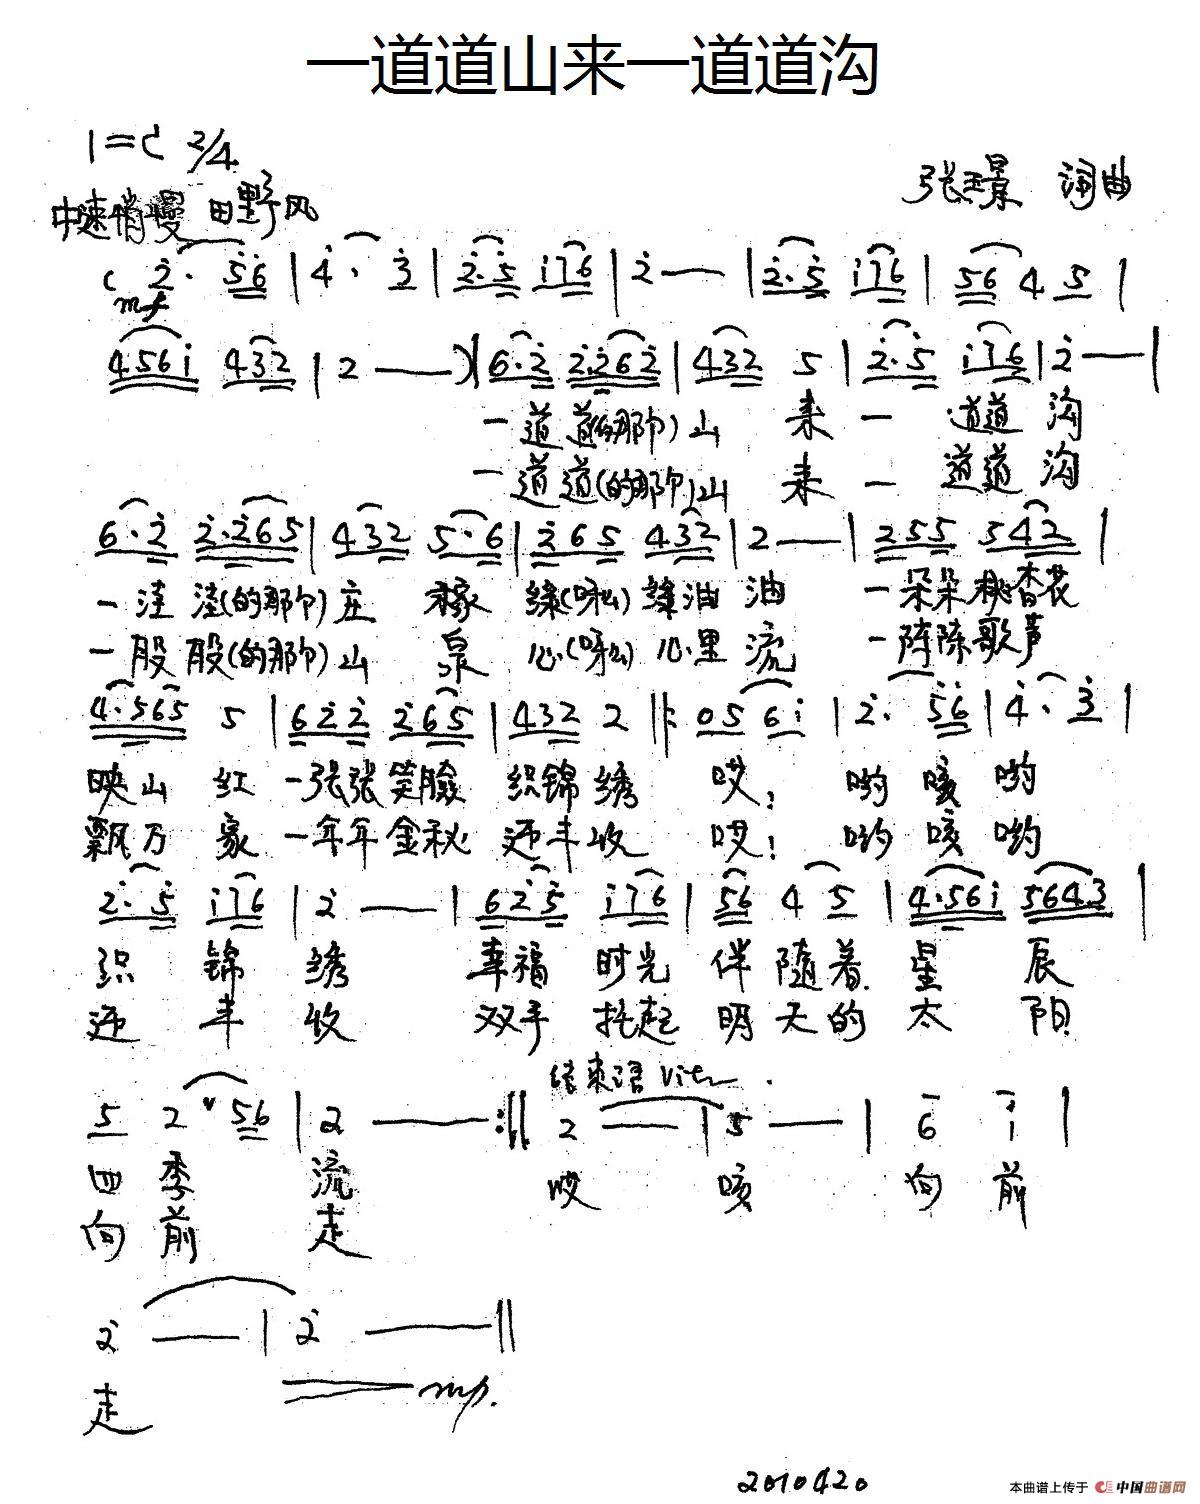 一道道山来一道道沟
1=C 2/4
张玉景 词曲
中速稍慢 田野风
( 2̇· 5̇6̇ | 4̇· 3̇ | 2̇·5̇ i76 | 2̇ — | 2̇·5̇ i76 | 56 4 5 |
mf
456i 432 | 2 — )| 6·2̇ 2̇·2̇62̇ | 432 5 | 2̇·5̇ i76 | 2̇ — |
一道道(的那个)山 来 一 道道 沟
一道道(的那个)山 来 一 道道 沟
6·2̇ 2̇·2̇65 | 432 5·6 | 2̇65 432 | 2 — | 255 542 |
一洼洼(的那个)庄 稼 绿(呀么)绿油 油 一朵朵桃杏花
一股股(的那个)山 泉 心(呀么)心里 流 一阵阵歌声
4·565 5 | 62̇2̇ 2̇65 | 432 2 ‖: 05 6i | 2̇· 5̇6̇ | 4̇· 3̇ |
映山 红 一张张笑脸 织锦绣 哎! 哟 咳 哟
飘万 家 一年年金秋 迎丰收 哎! 哟 咳 哟
2̇·5̇ i76 | 2̇ — | 62̇5̇ i76 | 56 4 5 | 4·56i 5643 |
织 锦 绣 幸福 时光 伴 随着 星 辰
迎 丰 收 双手 托起 明 天的 太 阳
结束语 Vit
5 2 ᵛ56 | 2 — :‖ 2 — | 5 — | 6 i |
四 季 流 哎 咳 向 前
向 前 走
2̇ — | 2̇ — ‖
走 mp.
20100420
本曲谱上传于 中国曲谱网